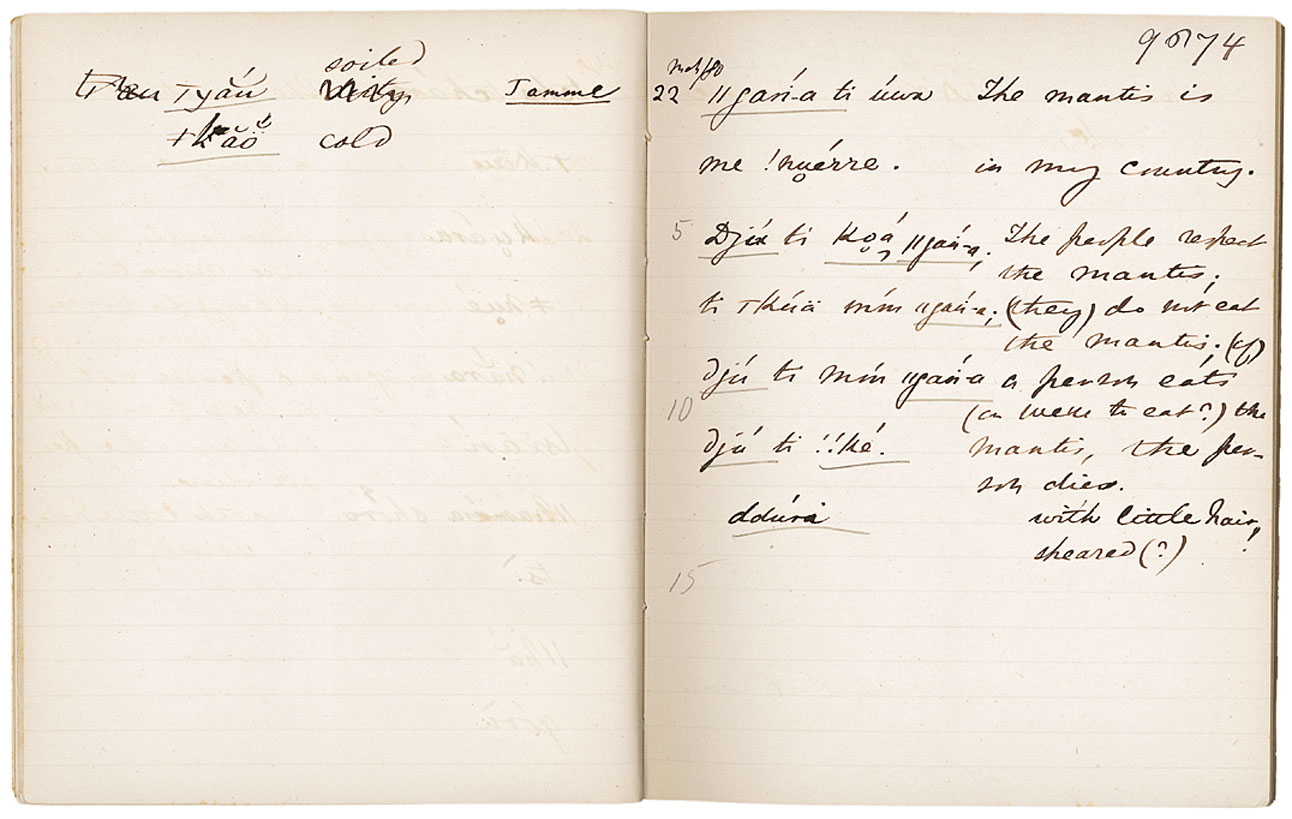 soiled
Tyăú Tamme
cold
9874
22 ǁgaṅ-a ti úwa The mantis is
me !nu̯érre. in my country.
5 Djú ti ǁgáṅ-a; The people respect
the mantis;
ti mḿ ǁgáṅ-a; (they) do not eat
the mantis. (if)
djú ti mḿ ǁgáṅ-a a person eats
10 (or were to eat?) the
djú ti !!ké. mantis, the per-
son dies.
ddúrä with little hair,
sheared (?)
15